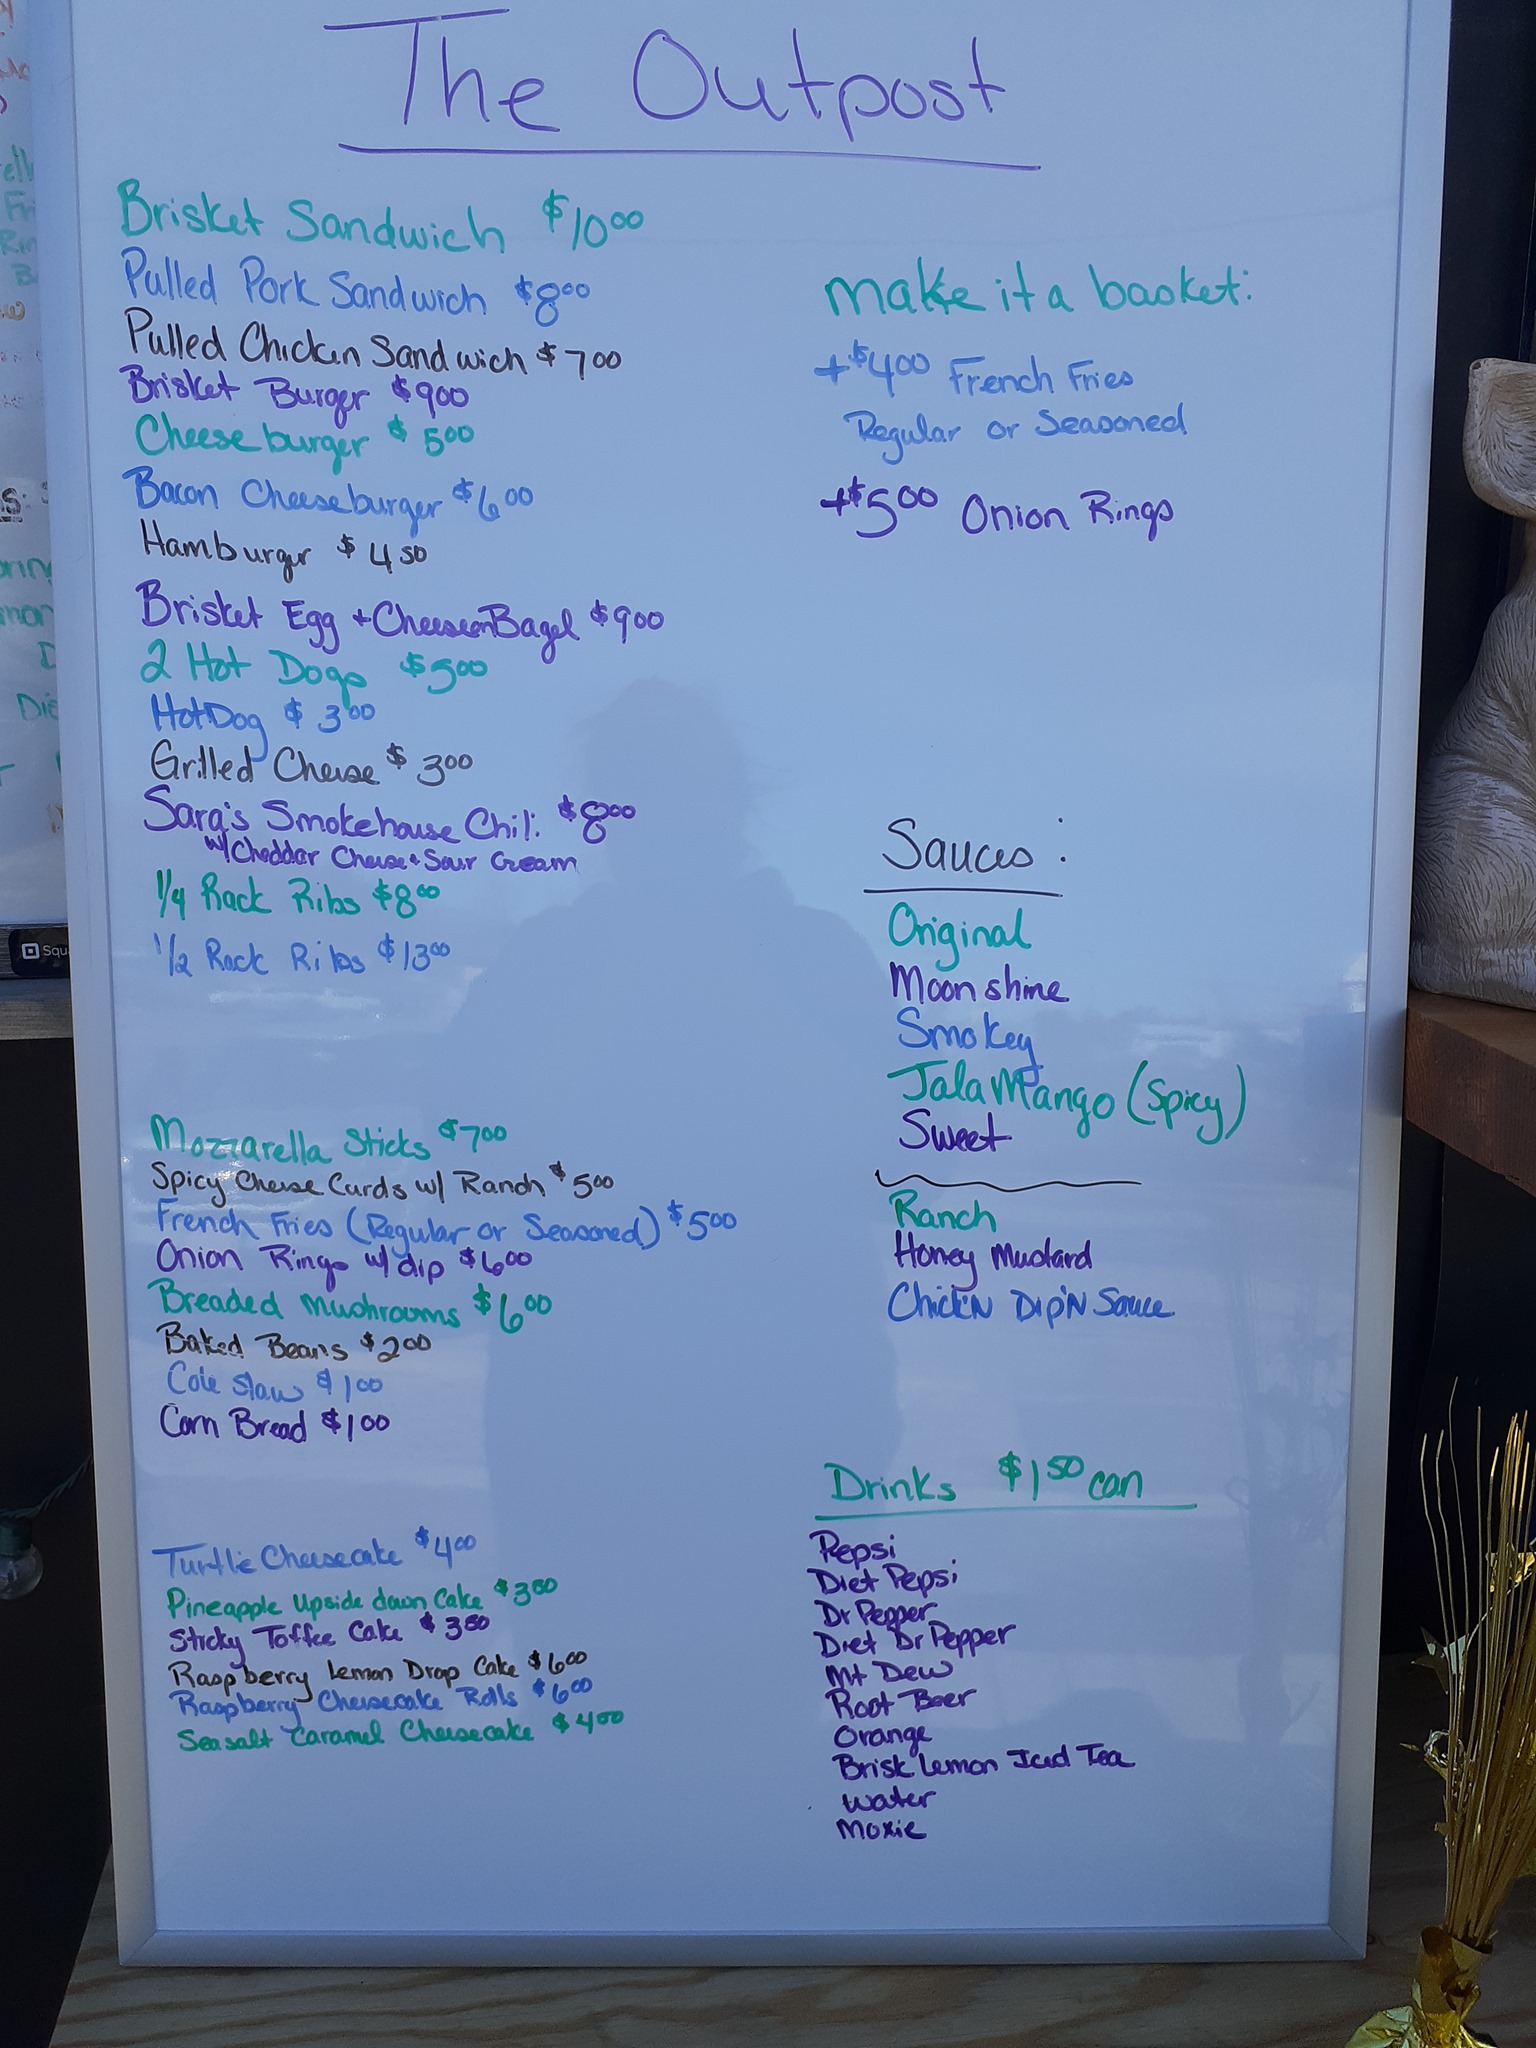 The Outpost
Brisket Sandwich $10.00
Pulled Pork Sandwich $8.00
Pulled Chicken Sandwich $7.00
Brisket Burger $9.00
Cheeseburger $5.00
Bacon Cheeseburger $6.00
Hamburger $4.50
Brisket Egg + Cheese on Bagel $9.00
2 Hot Dogs $5.00
Hot Dog $3.00
Grilled Cheese $3.00
Sara's Smokehouse Chili $8.00
w/ Cheddar Cheese + Sour Cream
1/4 Rack Ribs $8.00
1/2 Rack Ribs $13.00
Mozzarella Sticks $7.00
Spicy Cheese Curds w/ Ranch $5.00
French Fries (Regular or Seasoned) $5.00
Onion Rings w/ dip $6.00
Breaded Mushrooms $6.00
Baked Beans $2.00
Cole Slaw $1.00
Corn Bread $1.00
Turtle Cheesecake $4.00
Pineapple Upside down Cake $3.50
Sticky Toffee Cake $3.50
Raspberry Lemon Drop Cake $6.00
Raspberry Cheesecake Rolls $6.00
Seasalt Caramel Cheesecake $4.00
make it a basket:
+$4.00 French Fries
Regular or Seasoned
+$5.00 Onion Rings
Sauces:
Original
Moonshine
Smokey
JalaMango (Spicy)
Sweet
Ranch
Honey Mustard
Chick'N Dip'N Sauce
Drinks $1.50 can
Pepsi
Diet Pepsi
Dr Pepper
Diet Dr Pepper
Mt Dew
Root Beer
Orange
Brisk Lemon Iced Tea
Water
Moxie